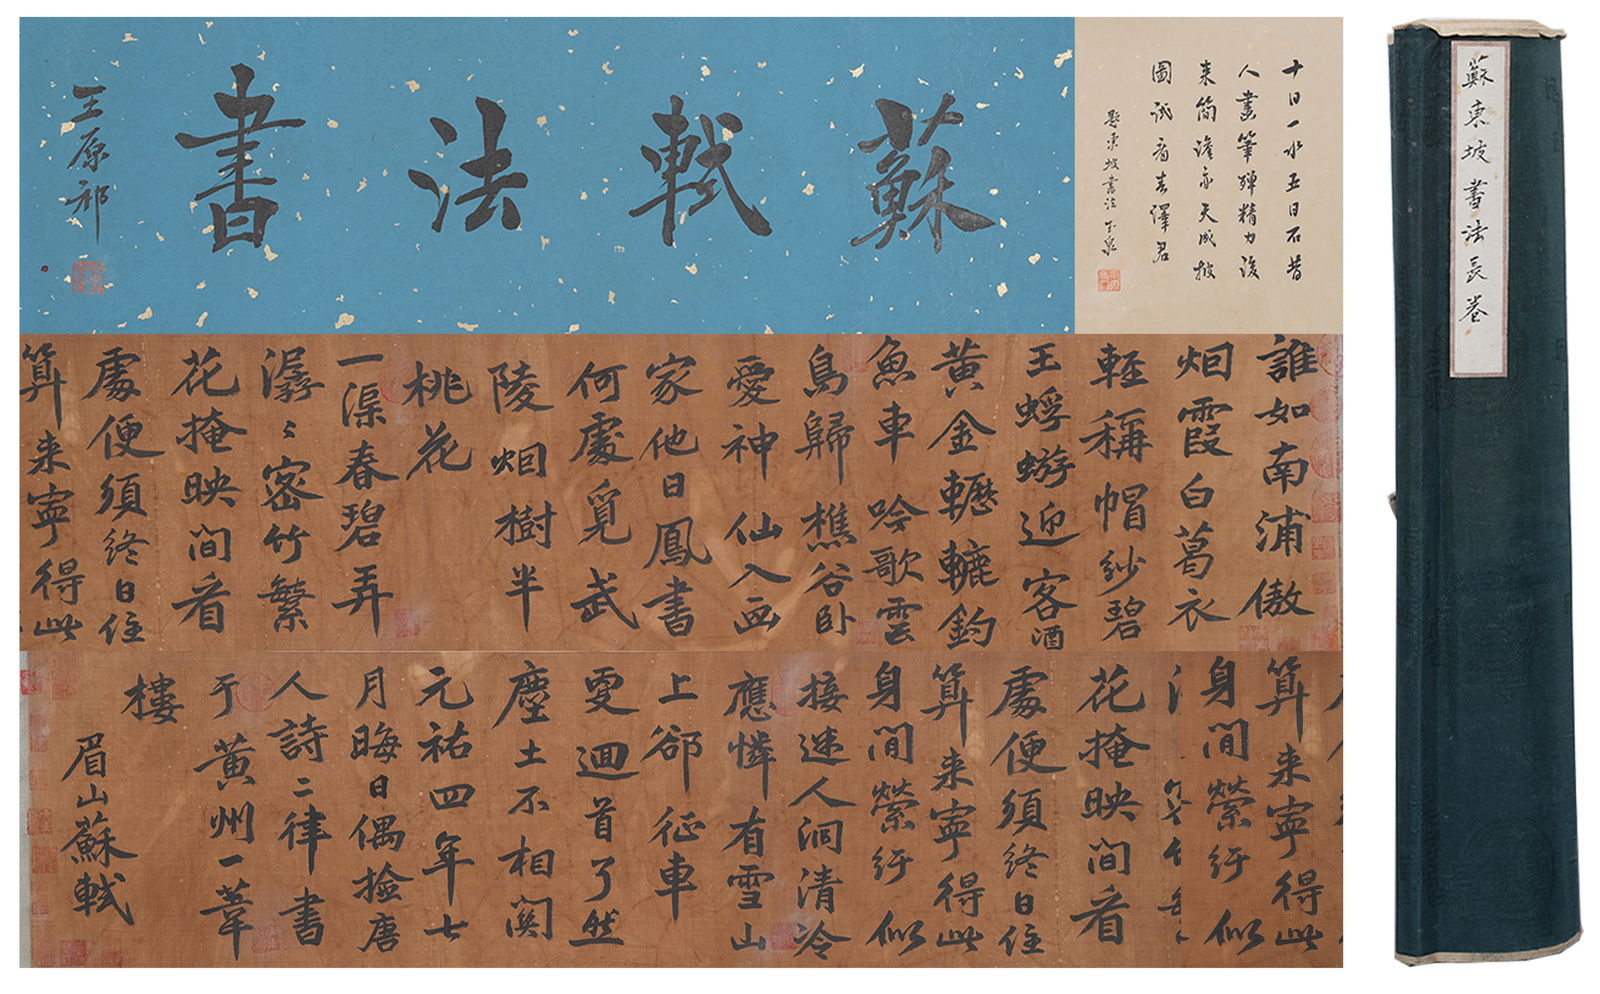 十日一水五日石昔
人畫筆殫精力後
来簡澹亦天成披
圖試看春澤君
題東坡書法 玉泉
蘇軾法書
王原祁
誰如南浦傲
烟霞白葛衣
軽稱帽紗碧
玉蜉蝣迎客酒
黄金轣轆釣
魚車吟歌雲
鳥歸樵谷卧
愛神仙入画
家他日鳳書
何處覓武
陵烟樹半
桃花
一渠春碧弄
潺〻密竹繁
花掩映間看
處便須終日住
算来寧得此
算来寧得此
身閒縈紆似
花掩映間看
處便須終日住
算来寧得此
身閒縈紆似
接迷人洞清冷
應憐有雪山
上郤征車
更迴首了然
塵土不相関
元祐四年七
月晦日偶撿唐
人詩二律書
于黄州一葦
樓
眉山蘇軾
蘇東坡書法長卷